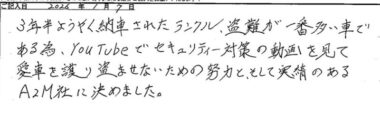 ご記入日 2026年1月7日
3年半ようやく納車されたランクル、盗難が一番多い車で
ある為、YouTubeでセキュリティー対策の動画を見て
愛車を護り盗ませないための努力と、そして実績のある
A2M社に決めました。